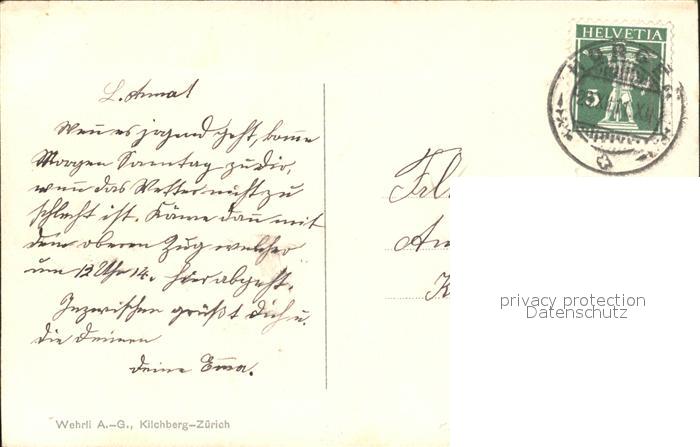 L. Anna!
Wenn es irgend geht, komme
Morgen Sonntag zu dir,
wenn das Wetter nicht zu
schlecht ist. Käme dann mit
dem oberen Zug welcher
um 12 Uhr 14. hier abgeht.
Inzwischen grüßt dich u.
die deinen
deine Emma.
Wehrli A.-G., Kilchberg-Zürich
HELVETIA
5
HORGEN
Frl.
privacy protection
Datenschutz